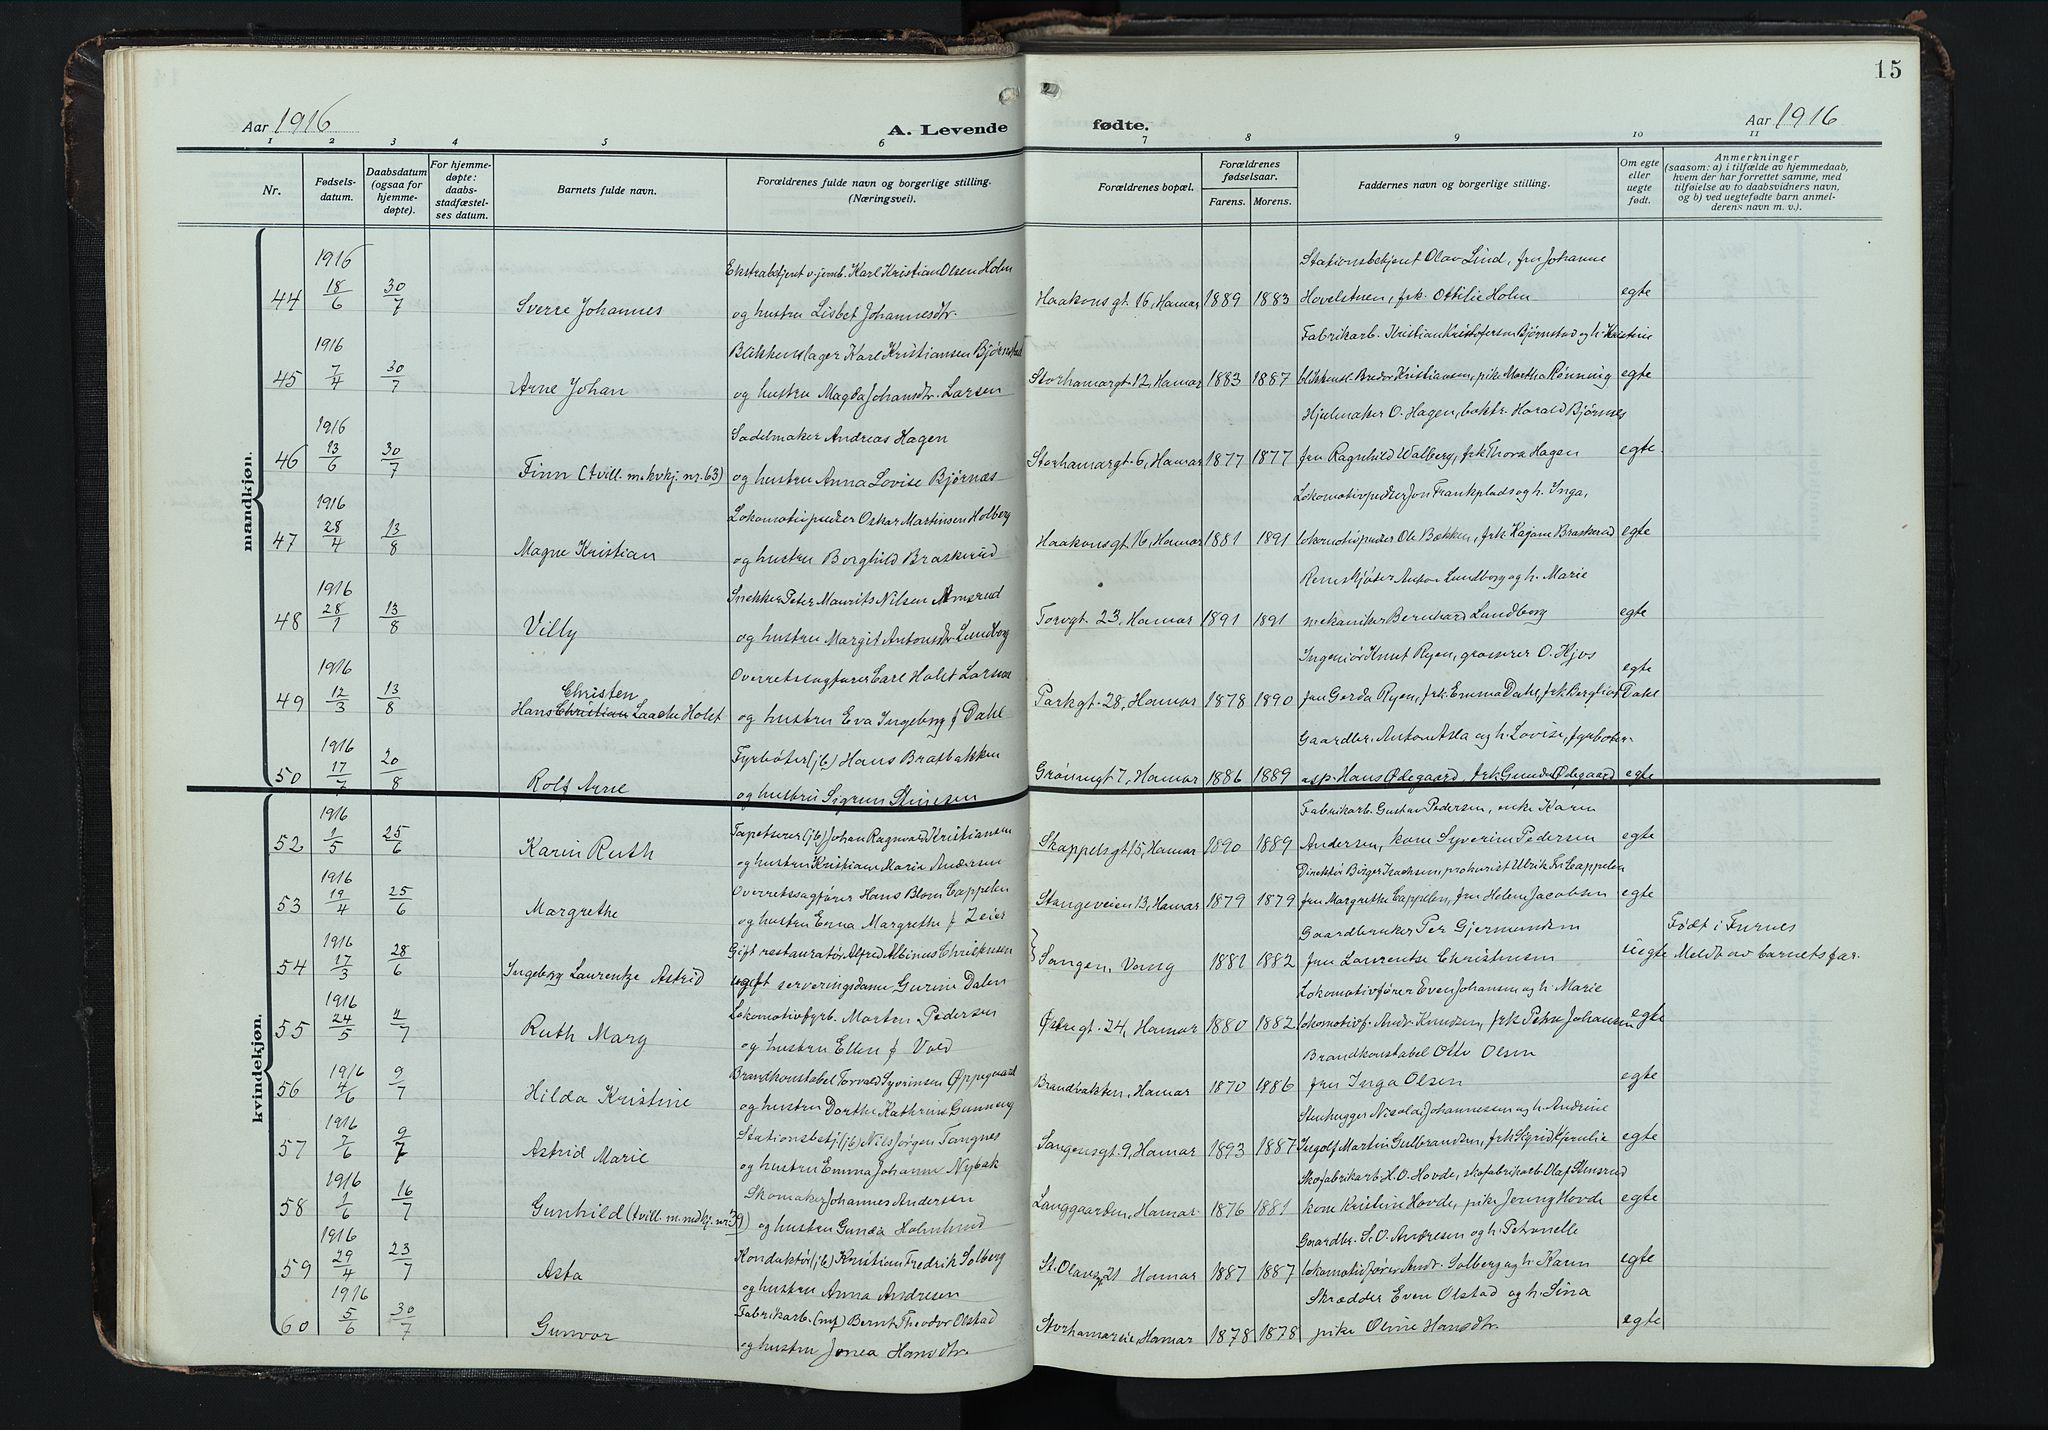 15
Aar 1916
A. Levende fødte.
Aar 1916
1 2 3 4 5 6 7 8 9 10 11
Nr.
Fødsels-
datum.
Daabsdatum
(ogsaa for
hjemme-
døpte).
For hjemme-
døpte:
daabs-
stadfæstel-
ses datum.
Barnets fulde navn.
Forældrenes fulde navn og borgerlige stilling.
(Næringsvei).
Forældrenes bopæl.
Forældrenes
fødselsaar.
Farens. Morens.
Faddernes navn og borgerlige stilling.
Om egte
eller
uegte
født.
Anmerkninger
(saasom: a) i tilfælde av hjemmedaab,
hvem der har forrettet samme, med
tilføielse av to daabsvidners navn,
og b) ved uegtefødte barn anmel-
derens navn m. v.).
mandkjøn.
1916 Ekstrabetjent v. jernb. Karl Kristian Olsen Holm Stationsbetjent Olav Lind, fru Johanne
44 18/6 30/7 Sverre Johannes og hustru Lisbet Johannesdtr. Haakonsgt. 16, Hamar 1889 1883 Hovelstuen, frk. Ottilie Holm egte
1916 Blikkenslager Karl Kristiansen Bjørnstad Fabrikarb. Kristian Kristofersen Bjørnstad og h. Kristine
45 7/4 30/7 Arne Johan og hustru Magda Johansdtr. Larsen Storhamargt. 12, Hamar 1883 1887 blikkensl. Bredo Kristiansen, pike Martha Rønning egte
1916 Sadelmaker Andreas Hagen Hjulmaker O. Hagen, Harald Bjørnes
46 13/6 30/7 Finn (tvill. m. kvkj. nr. 63) og hustru Anna Lovise Bjørnæs Storhamargt. 6, Hamar 1877 1877 fru Ragnhild Walberg, frk Thora Hagen egte
1916 Lokomotivpudser Oskar Martinsen Holberg Lokomotivpudser Jon Frankplads og h. Inga,
47 28/4 13/8 Magne Kristian og hustru Borghild Braskerud Haakonsgt. 16, Hamar 1881 1891 lokomotivpudser Ole Bækken, frk Kajane Braskerud egte
1916 Snekker Peter Maurits Nilsen Amsrud Remskjøter Anton Lundborg og h. Marie
48 28/1 13/8 Villy og hustru Margit Antonsdtr. Lundborg Torvgt. 23, Hamar 1891 1891 mekaniker Bernhard Lundborg egte
1916 Overretssagfører Carl Holst Larsen Ingeniør Knut Ryen, grosserer O. Kjos
49 12/3 13/8 Hans Christian Christen Laache Holst og hustru Eva Ingeborg f Dahl Parkgt. 28, Hamar 1878 1890 fru Gerda Ryen, frk. Emma Dahl, frk Bergliot Dahl egte
1916 Fyrbøter (jb) Hans Bratbakken Gaardbr. Anton Asla og h. Lovise, fyrbøter-
50 17/7 20/8 Rolf Arne og hustru Sigrun Stinesen Grønnegt 7, Hamar 1886 1889 asp. Hans Ødegaard frk Gunda Ødegaard egte
kvindekjøn.
1916 Tapetserer (jb) Johan Ragnvald Kristiansen Fabrikarb. Gustav Pedersen, enke Karen
52 1/5 25/6 Karin Ruth og hustru Kristiane Marie Andersen Skappelsgt 15, Hamar 1890 1889 Andersen, kone Syverine Pedersen egte
1916 Overretssagfører Hans Blom Cappelen Direktør Birger Isachsen, prokurist Ulrik Fr. Cappelen
53 19/4 25/6 Margrethe og hustru Enna Margrethe f Zeier Stangeveien 13, Hamar 1879 1879 fru Margrethe Cappelen, fru Helene Jacobsen egte
1916 Gift restauratør Alfred Albinus Christensen Gaardbruker Per Gjermundsen Født i Furnes
54 17/3 28/6 Ingeborg Laurentze Astrid ugift serveringsdame Gurine Dalen Sangen, Vang 1881 1882 fru Laurentze Christensen uegte Meldt av barnets far.
1916 Lokomotivfyrb. Morten Pedersen Lokomotivfører Even Johansen og h. Marie
55 24/5 2/7 Ruth Mary og hustru Ellen f Vold Østregt. 24, Hamar 1880 1882 lokomotivf. Andr. Knudsen, frk Petra Johansen egte
1916 Brandkonstabel Torvald Syvrinsen Oppegaard Brandkonstabel Otto Olsen
56 4/6 9/7 Hilda Kristine og hustru Dorthe Kathrine Gunneng Brandvakten, Hamar 1870 1886 fru Inga Olsen egte
1916 Stationsbetj. (jb) Nils Jørgen Tangnes Stenhugger Nicolai Johannesen og h. Andrine
57 7/6 9/7 Astrid Marie og hustru Emma Johanne Nybak Sangensgt. 9, Hamar 1893 1887 Ingolf Martin Gulbrandsen, frk Sigrid Kjernlie egte
1916 Skomaker Johannes Andersen Skofabrikarb. H. O. Hovde, skofabrikarb. Olaf Stensrud
58 1/6 16/7 Gunhild (tvill. m. mdkj. nr. 39) og hustru Gunda Holmlund Langgaarden, Hamar. 1876 1881 kone Kristine Hovde, pike Jenny Hovde egte
1916 Konduktør (jb) Kristian Fredrik Solberg Gaardbr. S. O. Andresen og h. Petronelle
59 29/4 23/7 Asta og hustru Anna Andresen St. Olavsg. 21 Hamar 1887 1887 lokomotivfører Andr. Solberg og h. Karen egte
1916 Fabrikarb. (mf) Bernt Theodor Olstad Skrædder Even Olstad og h. Sina
60 5/6 30/7 Gunvor og hustru Jonea Hansdtr. Storhamarvie, Hamar 1878 1878 pike Oline Hansdtr. egte